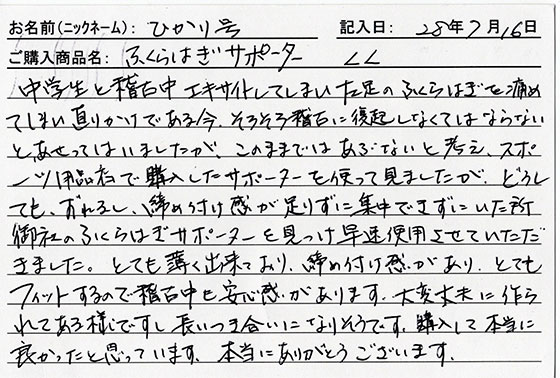 お名前(ニックネーム): ひかり号 記入日: 28年7月16日
ご購入商品名: ふくらはぎサポーター LL
中学生と稽古中エキサイトしてしまい左足のふくらはぎを痛め
てしまい直りかけである今、そろそろ稽古に復起しなくてはならない
とあせってはいましたが、このままではあぶないと考え、スポ
ーツ用品店で購入したサポーターを使って見ましたが、どうし
ても、ずれるし、締め付け感が足りずに集中できずにいた所
御社のふくらはぎサポーターを見つけ早速使用させていただ
きました。とても薄く出来ており、締め付け感があり、とても
フィットするので稽古中も安心感があります。大変丈夫に作ら
れてある様ですし長いつき合いになりそうです。購入して本当に
良かったと思っています。本当にありがとうございます。